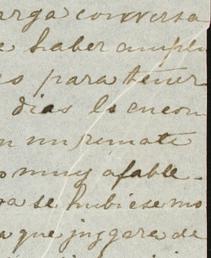 arga conversa
e haber ampli
es para tener
dias lo encon
on un remate
o muy afable.
ra se hubiese mo
a que juzgara de